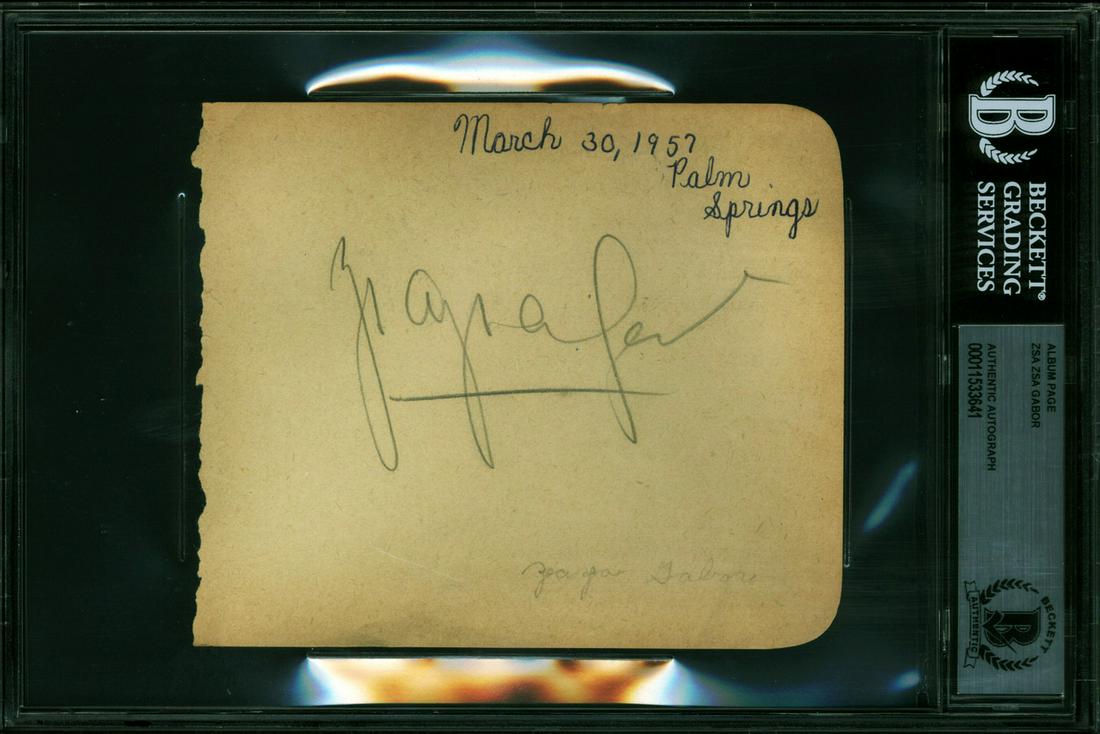 March 30, 1957
Palm
Springs
Zsa Zsa Gabor
Zsa Zsa Gabor
BECKETT®
GRADING
SERVICES
ALBUM PAGE
ZSA ZSA GABOR
AUTHENTIC AUTOGRAPH
00011533641
BECKETT
AUTHENTIC